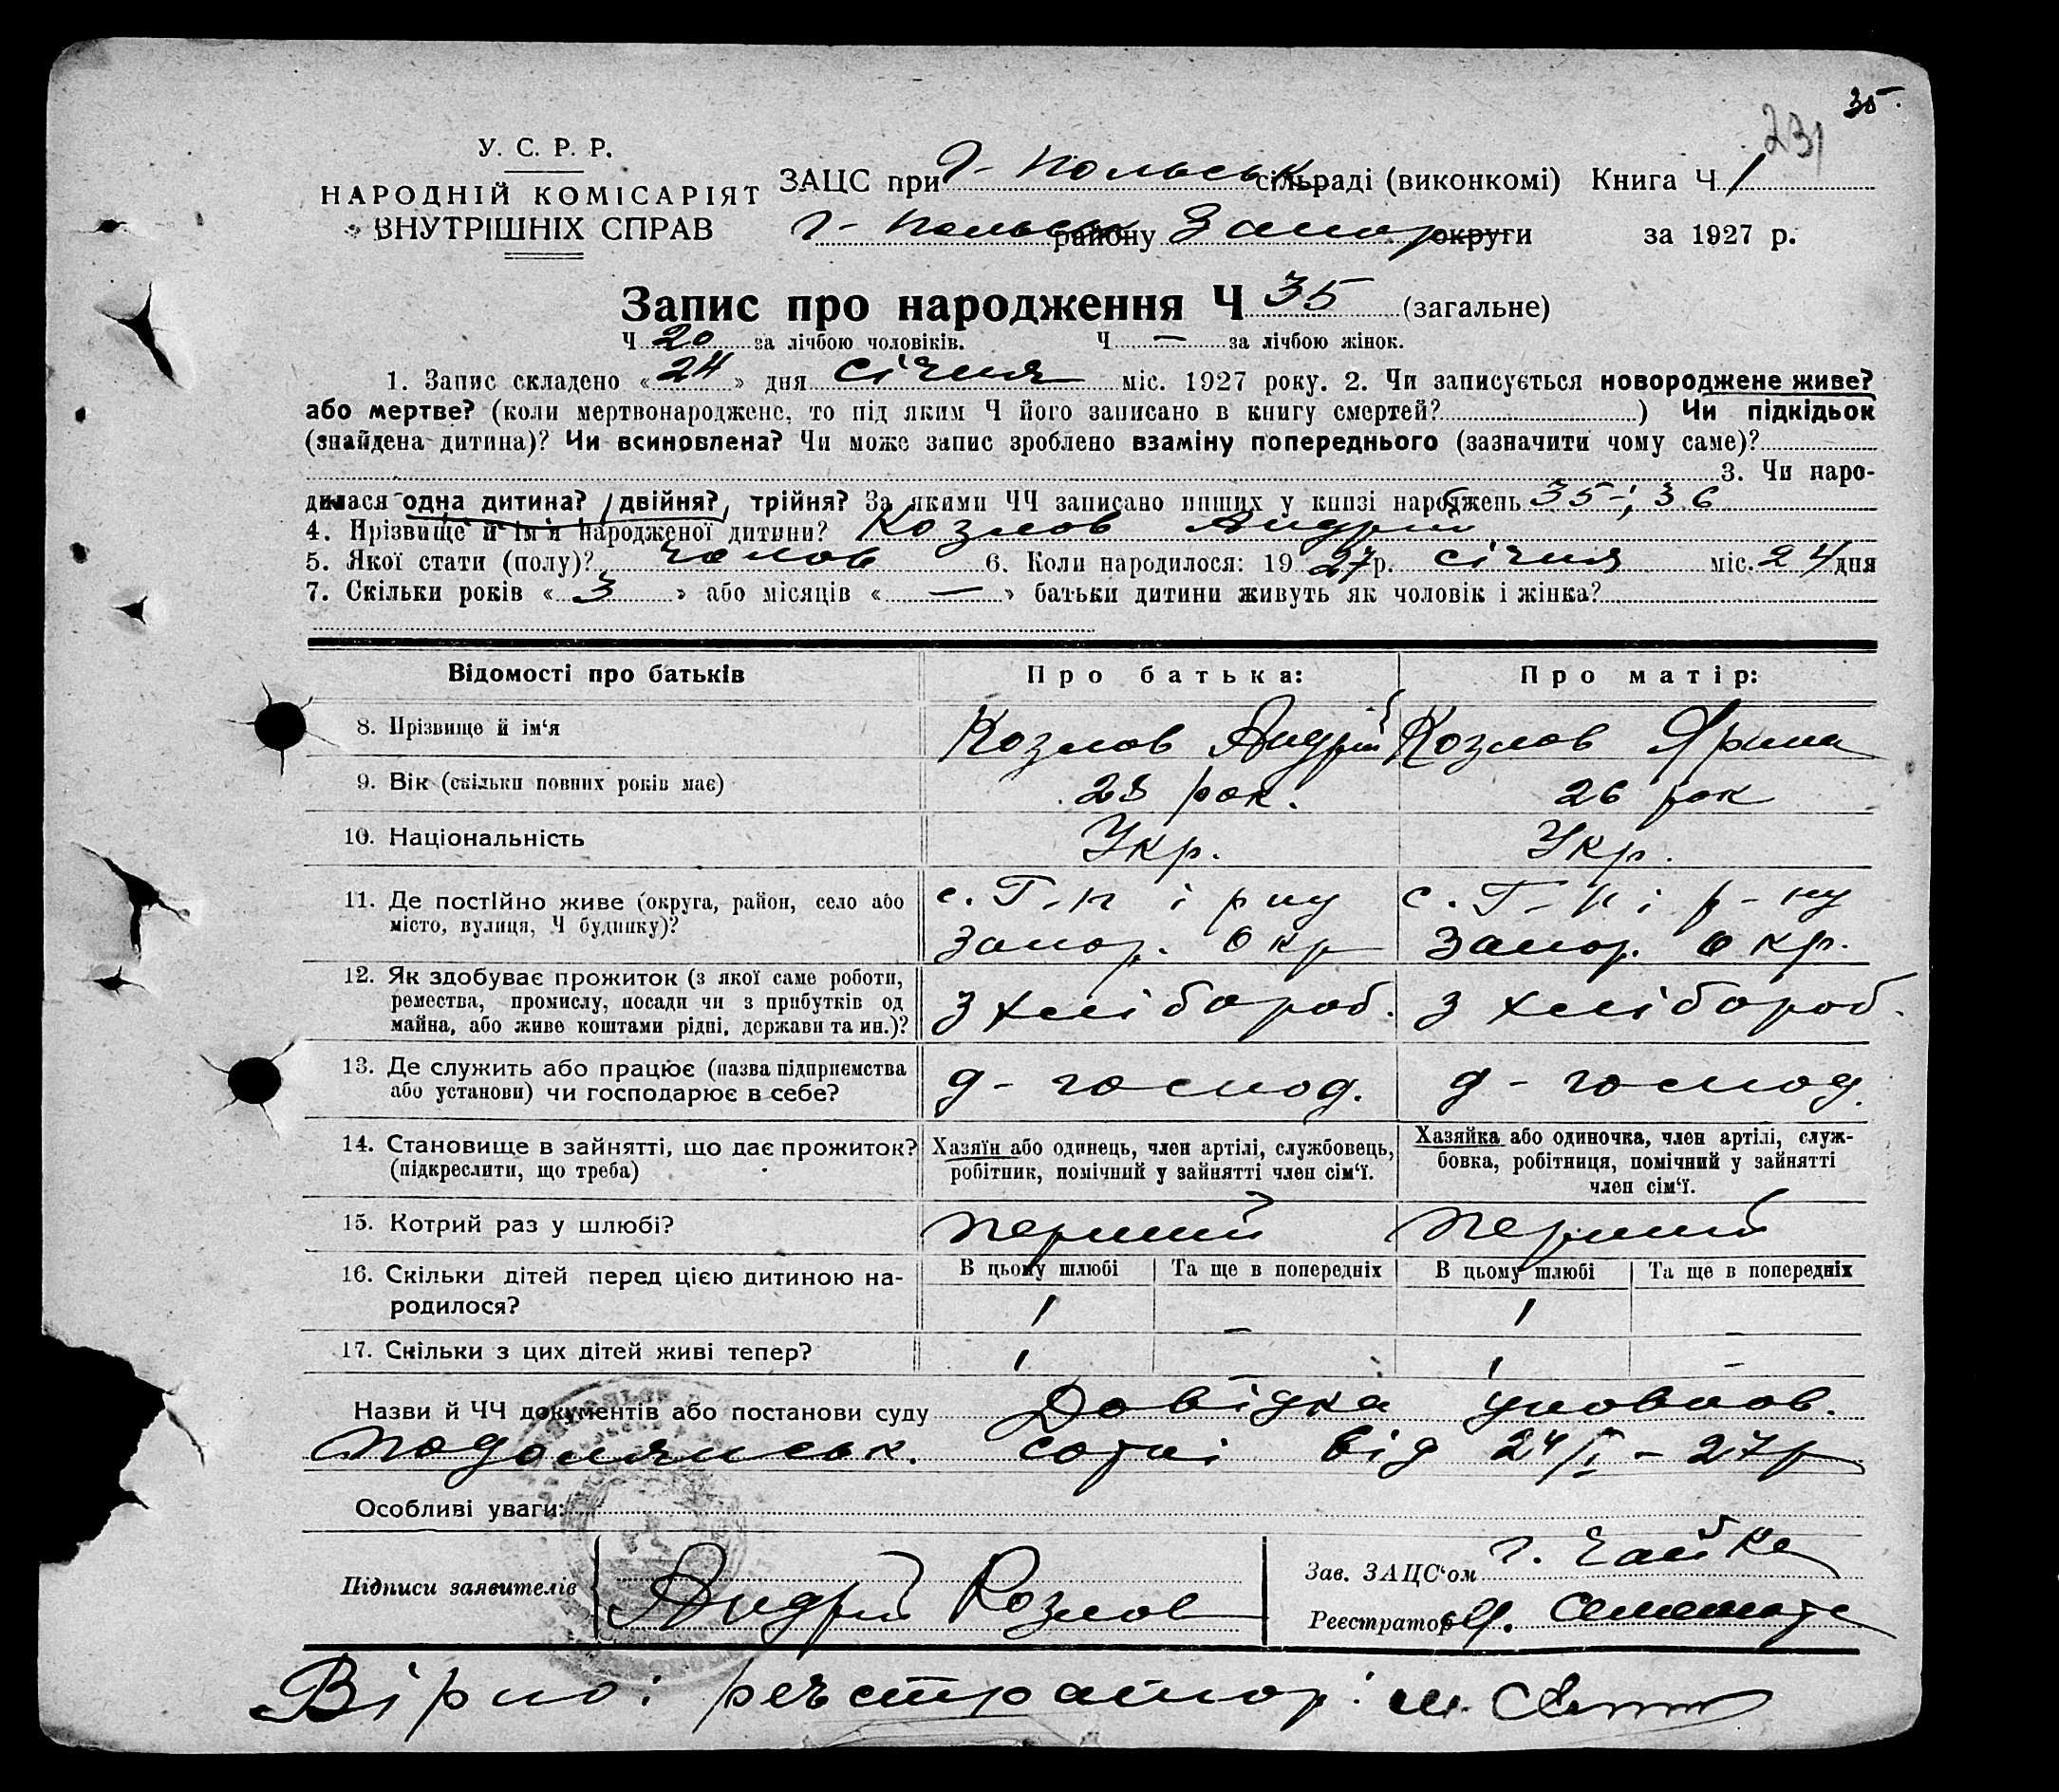 35.
231
У. С. Р. Р.
НАРОДНІЙ КОМІСАРІЯТ
ВНУТРІШНІХ СПРАВ
ЗАЦС при Г-Польськ сільраді (виконкомі) Книга Ч 1
Г-Польськ району Запор округи за 1927 р.
Запис про народження Ч 35 (загальне)
Ч 20 за лічбою чоловіків. Ч — за лічбою жінок.
1. Запис складено «24» дня січня міс. 1927 року. 2. Чи записується новороджене живе?
або мертве? (коли мертвонароджене, то під яким Ч його записано в книгу смертей? ) Чи підкідьок
(знайдена дитина)? Чи всиновлена? Чи може запис зроблено взаміну попереднього (зазначити чому саме)?
3. Чи наро-
дилася одна дитина? двійня?, трійня? За якими ЧЧ записано инших у книзі народжень 35-; 36
4. Прізвище й ім'я народженої дитини? Козлов Андрій
5. Якої стати (полу)? чолов 6. Коли народилося: 1927 р. січня міс. 24 дня
7. Скільки років «3» або місяців «—» батьки дитини живуть як чоловік і жінка?
Відомості про батьків Про батька: Про матір:
8. Прізвище й ім'я Козлов Андрій Козлов Ярина
9. Вік (скільки повних років має) 28 рок. 26 рок
10. Національність Укр. Укр.
11. Де постійно живе (округа, район, село або с. Г-п і рну с. Г-п і р-ну
місто, вулиця, Ч будинку)? Запор. Окр Запор. Окр.
12. Як здобуває прожиток (з якої саме роботи,
ремества, промислу, посади чи з прибутків од з хлібороб. з хлібороб.
майна, або живе коштами рідні, держави та ин.)?
13. Де служить або працює (назва підприємства
або установи) чи господарює в себе? д-господ. д-господ.
14. Становище в зайнятті, що дає прожиток? Хазяїн або одинець, член артілі, службовець, Хазяйка або одиночка, член артілі, служ-
(підкреслити, що треба) робітник, помічний у зайнятті член сім'ї. бовка, робітниця, помічний у зайнятті
член сім'ї.
15. Котрий раз у шлюбі? перший перший
16. Скільки дітей перед цією дитиною на- В цьому шлюбі Та ще в попередніх В цьому шлюбі Та ще в попередніх
родилося? 1 — 1 —
17. Скільки з цих дітей живі тепер? 1 1 —
Назви й ЧЧ документів або постанови суду Довідка уповнов.
Подолянськ. сотні від 24/I-27р
Особливі уваги:
Підписи заявителів Андрій Козлов
Зав. ЗАЦС'ом Г. Чайка
Реєстратор
Вірно: реєстратор: